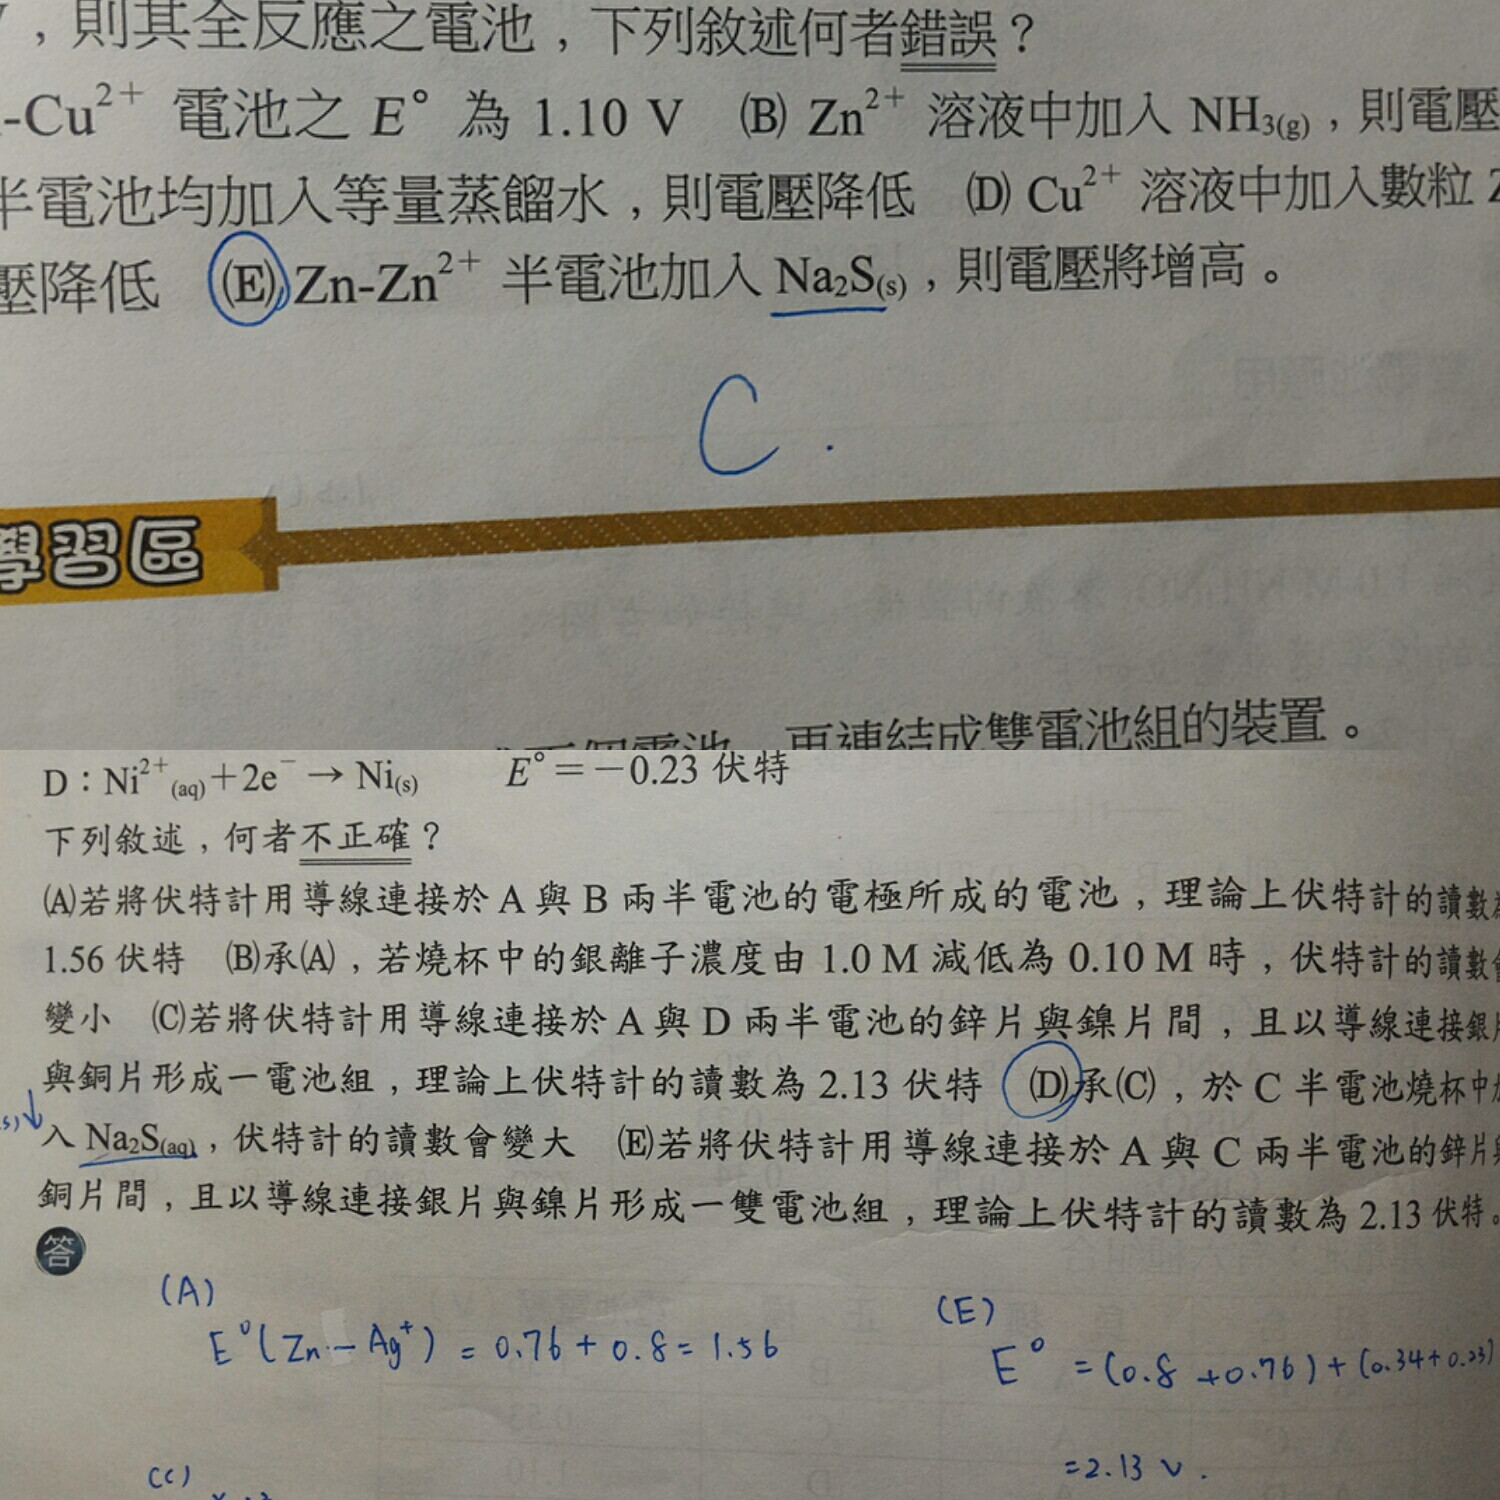 ，則其全反應之電池，下列敘述何者錯誤？
-Cu²⁺ 電池之 E° 為 1.10 V (B) Zn²⁺ 溶液中加入 NH₃(g)，則電壓
半電池均加入等量蒸餾水，則電壓降低 (D) Cu²⁺ 溶液中加入數粒
壓降低 (E) Zn-Zn²⁺ 半電池加入 Na₂S(s)，則電壓將增高。
C.
學習區
個電池，再連結成雙電池組的裝置。
D：Ni²⁺(aq)＋2e⁻ → Ni(s) E°＝－0.23 伏特
下列敘述，何者不正確？
(A)若將伏特計用導線連接於 A 與 B 兩半電池的電極所成的電池，理論上伏特計的讀數為
1.56 伏特 (B)承(A)，若燒杯中的銀離子濃度由 1.0 M 減低為 0.10 M 時，伏特計的讀數會
變小 (C)若將伏特計用導線連接於 A 與 D 兩半電池的鋅片與鎳片間，且以導線連接銀片
與銅片形成一電池組，理論上伏特計的讀數為 2.13 伏特 (D)承(C)，於 C 半電池燒杯中加
(s)↓
入 Na₂S(aq)，伏特計的讀數會變大 (E)若將伏特計用導線連接於 A 與 C 兩半電池的鋅片與
銅片間，且以導線連接銀片與鎳片形成一雙電池組，理論上伏特計的讀數為 2.13 伏特。
答
(A)
E°(Zn-Ag⁺) = 0.76 + 0.8 = 1.56
(E)
E° = (0.8 + 0.76) + (0.34 + 0.23)
= 2.13 V.
(C)